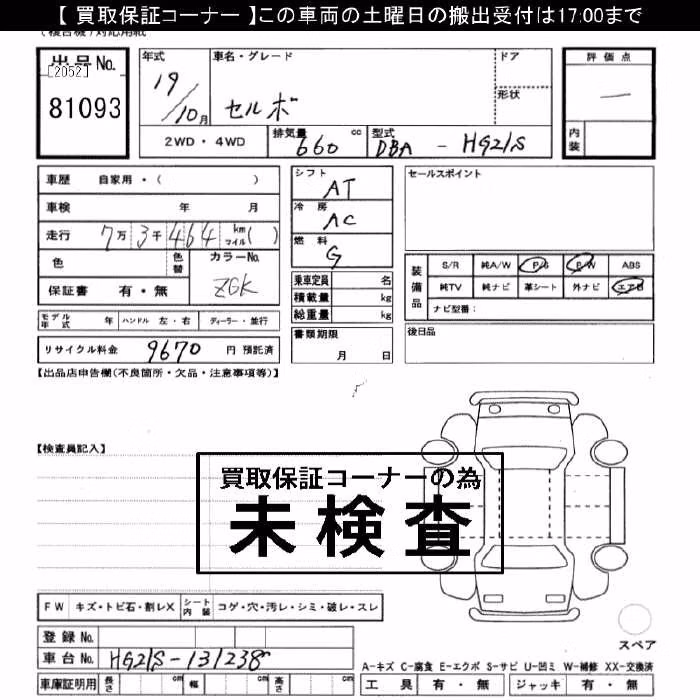 【 買取保証コーナー 】この車両の土曜日の搬出受付は17:00まで
出品No.
[2052]
81093
年式
19/10月
車名・グレード
セルボ
ドア
形状
2WD・4WD
排気量
660 cc
型式
DBA - HG21S
評価点
―
内装
車歴 自家用・( )
車検 年 月
走行 7万3千464 km マイル( )
色
色替
カラーNo.
ZGK
保証書 有・無
シフト
AT
冷房
AC
燃料
G
乗車定員 名
積載量 kg
総重量 kg
書類期限
月 日
セールスポイント
装備品
S/R 純A/W P/S P/W ABS
純TV 純ナビ 革シート 外ナビ エアB
ナビ型番：
後日品
モデル年式 年 ハンドル 左・右 ディーラー・並行
リサイクル料金 9670 円 預託済
【出品店申告欄(不良箇所・欠品・注意事項等)】
【検査員記入】
買取保証コーナーの為
未検査
FW キズ・トビ石・割レX シート内装 コゲ・穴・汚レ・シミ・破レ・スレ
スペア
登録No.
車台No. HG21S-131238
A-キズ C-腐食 E-エクボ S-サビ U-凹ミ W-補修 XX-交換済
車庫証明用 長さ cm 幅 cm 高さ cm
工具 有・無 ジャッキ 有・無